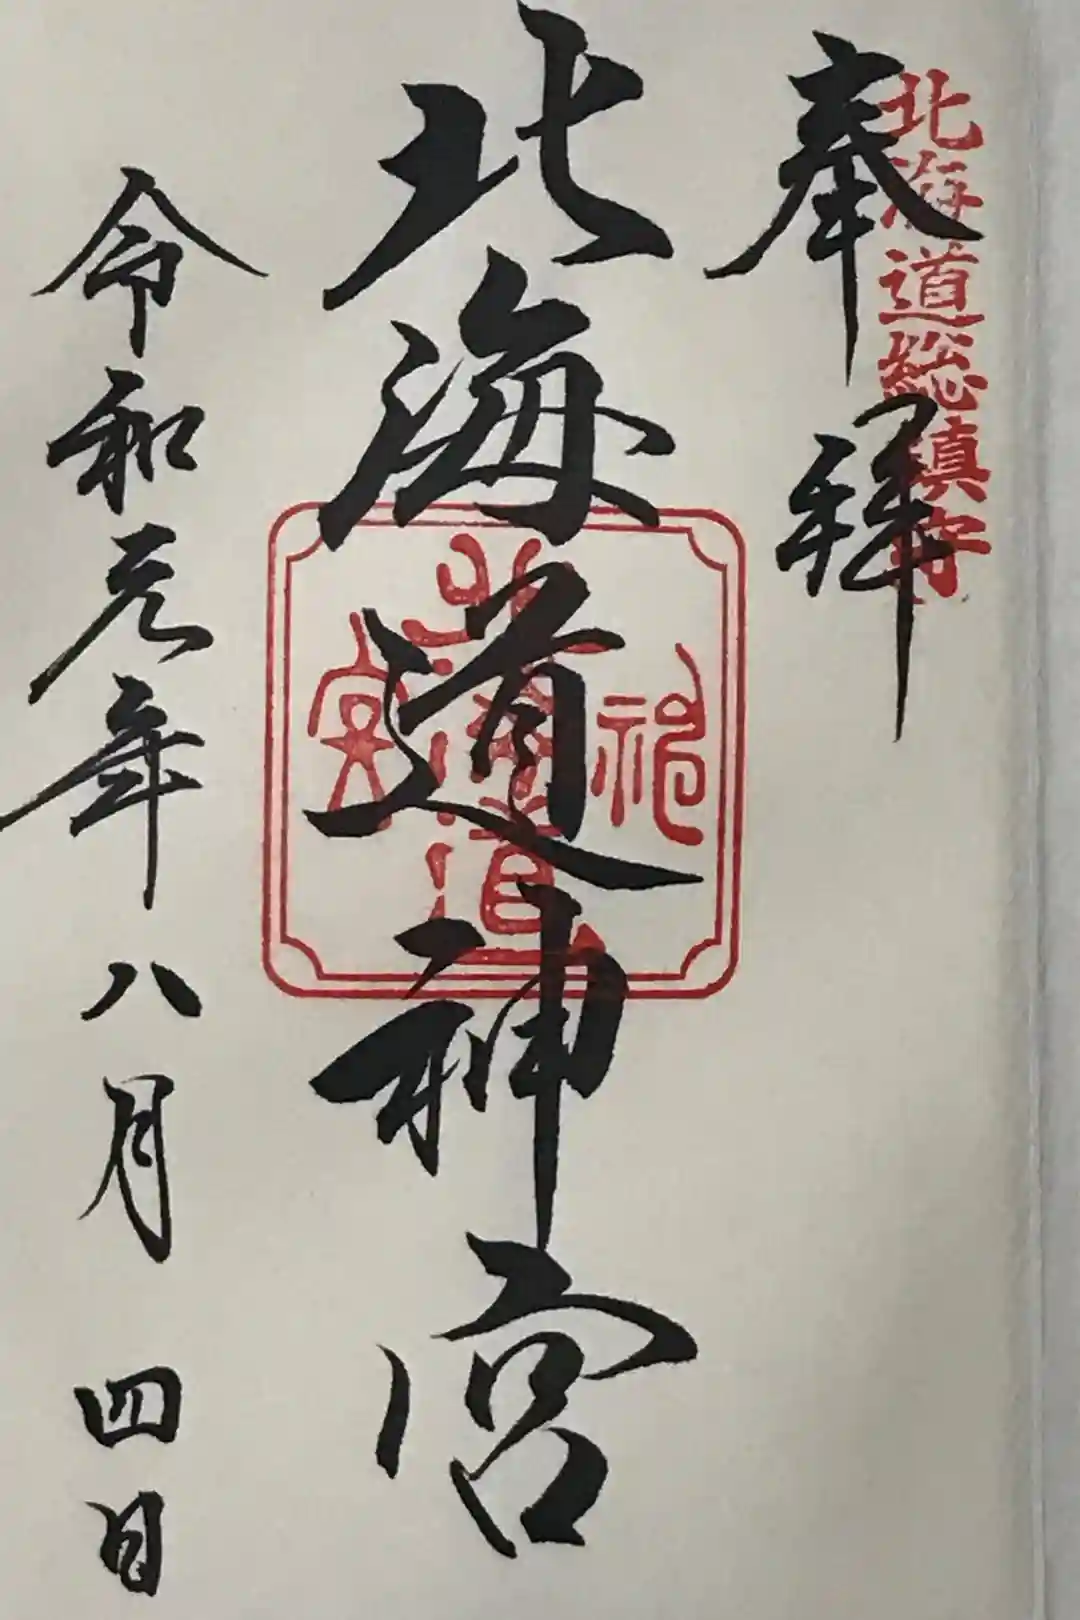 北海道総鎮守
奉拝
北海道神宮
北海道神宮
令和元年八月四日